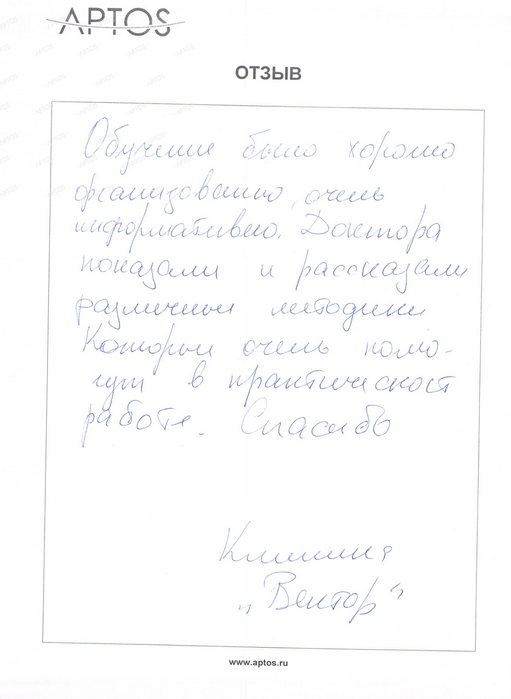 APTOS
ОТЗЫВ
Обучение было хорошо
организованно, очень
информативно. Доктора
показали и рассказали
различные методики
Которые очень помо-
гут в практической
работе. Спасибо
Клиника
„Вектор“
www.aptos.ru